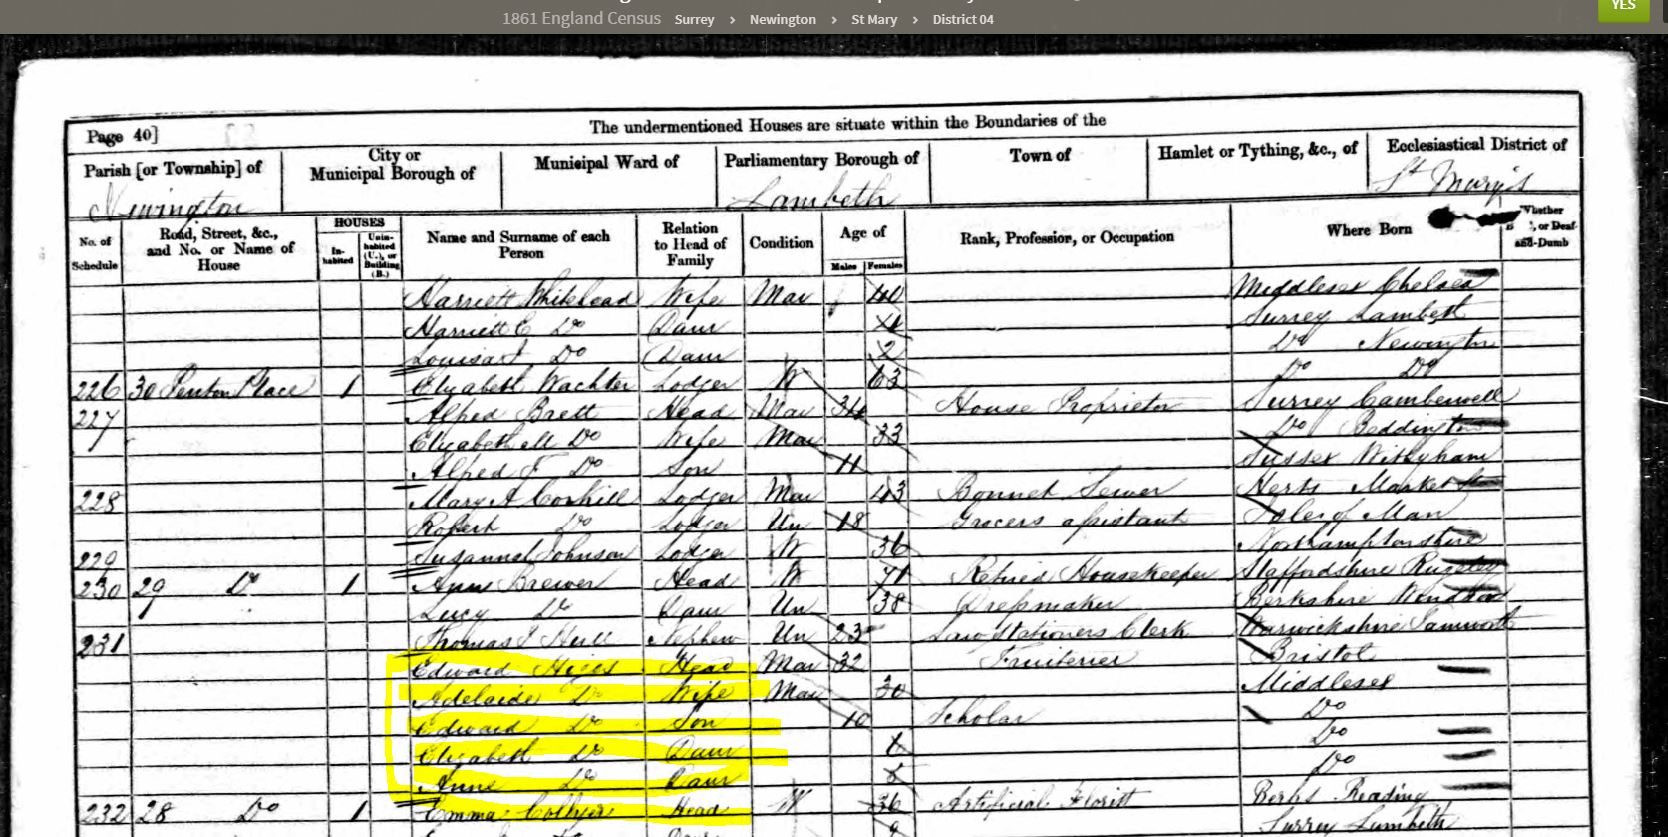 1861 England Census Surrey > Newington > St Mary > District 04
YES
The undermentioned Houses are situate within the Boundaries of the
Page 40]
Parish [or Township] of City or Municipal Borough of Municipal Ward of Parliamentary Borough of Town of Hamlet or Tything, &c., of Ecclesiastical District of
Newington Lambeth St Mary's
No. of Schedule Road, Street, &c., and No. or Name of House HOUSES Inhabited Uninhabited (U.), or Building (B.) Name and Surname of each Person Relation to Head of Family Condition Age of Males Females Rank, Profession, or Occupation Where Born Whether , or Deaf-and-Dumb
Harriett Whitehead Wife Mar 40 Middlesex Chelsea
Harriett C Do Daur Surrey Lambeth
Louisa Do Daur 2 Do Newington
226 30 Penton Place 1 Elizabeth Wachter Lodger W 63 Do Do
227 Alfred Brett Head Mar 34 House Proprietor Surrey Camberwell
Elizabeth M Do Wife Mar 33 Do Beddington
Alfred F Do Son 11 Sussex Withyham
228 Mary A Lodger Mar 43 Bonnet Sewer Herts Market
Robert Do Lodger Un 18 Grocers assistant Isle of Man
229 Susannah Johnson Lodger W 36 Northamptonshire
230 29 Do 1 Ann Brewer Head W 71 Retired Housekeeper Staffordshire Rugeley
Lucy Do Daur Un 38 Dressmaker Berkshire Windsor
231 Thomas Hull Nephew Un 23 Law Stationers Clerk Warwickshire Tamworth
Edward Higgs Head Mar 32 Fruiterer Bristol
Adelaide Do Wife Mar 30 Middlesex
Edward Do Son 10 Scholar Do
Elizabeth Do Daur Do
Anne Do Daur Do
232 28 Do 1 Emma Collyer Head W 36 Artificial Florist Berks Reading
Surrey Lambeth